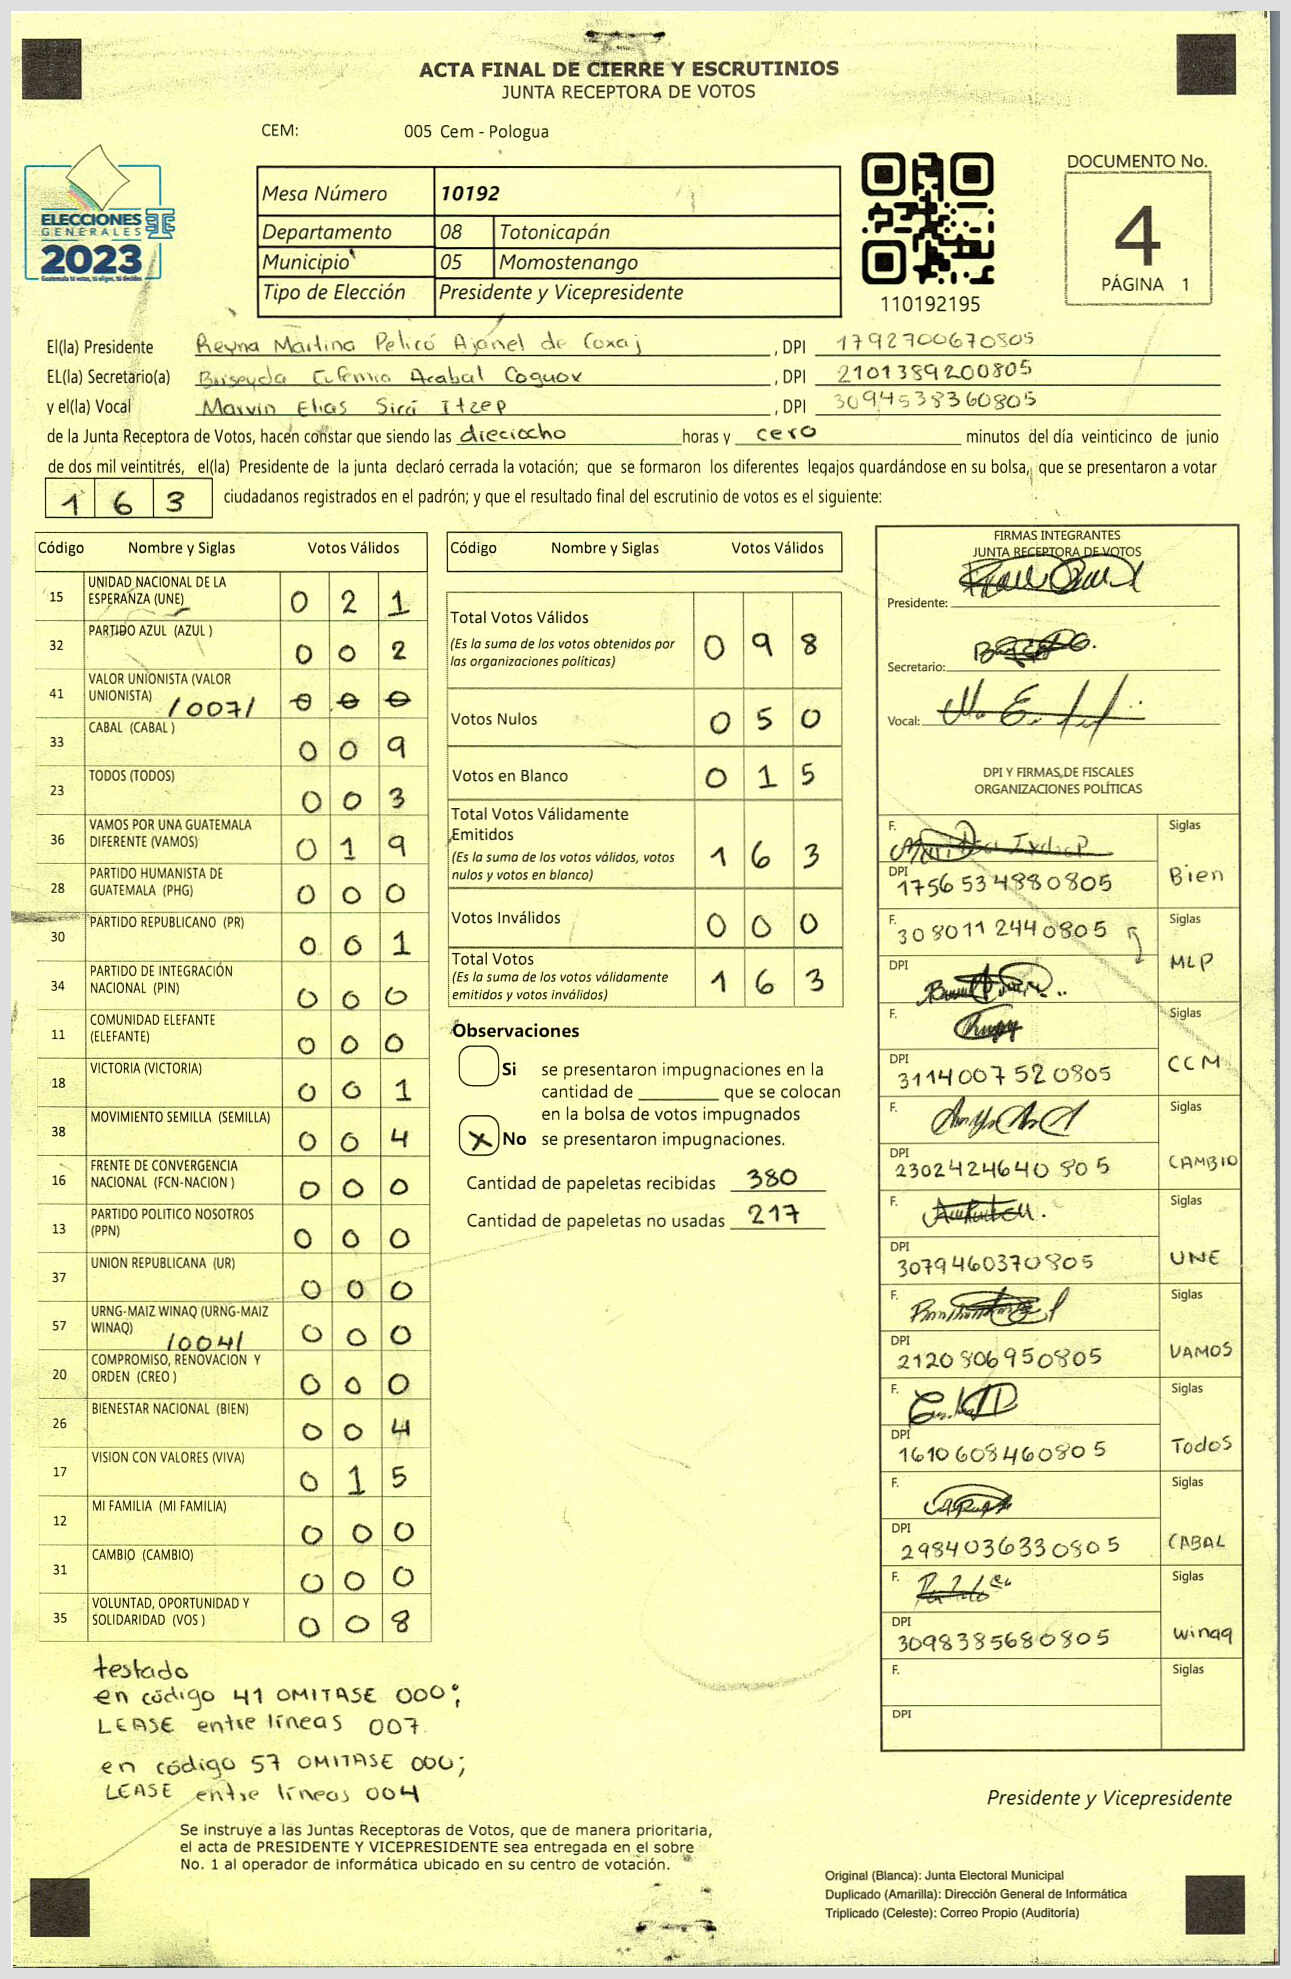 ACTA FINAL DE CIERRE Y ESCRUTINIOS
JUNTA RECEPTORA DE VOTOS
CEM: 005 Cem - Pologua
ELECCIONES
GENERALES
2023
Guatemala tú votas, tú eliges, tú decides
TSE
Mesa Número 10192
Departamento 08 Totonicapán
Municipio 05 Momostenango
Tipo de Elección Presidente y Vicepresidente
110192195
DOCUMENTO No.
4
PÁGINA 1
El(la) Presidente Reyna Martina Pelicó Ajanel de Coxaj , DPI 1792700670805
EL(la) Secretario(a) Briseyda Eufemia Acabal Coguox , DPI 2101389200805
y el(la) Vocal Marvin Elias Sicá Itzep , DPI 3094538360805
de la Junta Receptora de Votos, hacen constar que siendo las dieciocho horas y cero minutos del día veinticinco de junio
de dos mil veintitrés, el(la) Presidente de la junta declaró cerrada la votación; que se formaron los diferentes legajos guardándose en su bolsa, que se presentaron a votar
163 ciudadanos registrados en el padrón; y que el resultado final del escrutinio de votos es el siguiente:
Código Nombre y Siglas Votos Válidos
15 UNIDAD NACIONAL DE LA ESPERANZA (UNE) 0 2 1
32 PARTIDO AZUL (AZUL ) 0 0 2
41 VALOR UNIONISTA (VALOR UNIONISTA) /007/ 0 0 0
33 CABAL (CABAL ) 0 0 9
23 TODOS (TODOS) 0 0 3
36 VAMOS POR UNA GUATEMALA DIFERENTE (VAMOS) 0 1 9
28 PARTIDO HUMANISTA DE GUATEMALA (PHG) 0 0 0
30 PARTIDO REPUBLICANO (PR) 0 0 1
34 PARTIDO DE INTEGRACIÓN NACIONAL (PIN) 0 0 0
11 COMUNIDAD ELEFANTE (ELEFANTE) 0 0 0
18 VICTORIA (VICTORIA) 0 0 1
38 MOVIMIENTO SEMILLA (SEMILLA) 0 0 4
16 FRENTE DE CONVERGENCIA NACIONAL (FCN-NACION ) 0 0 0
13 PARTIDO POLITICO NOSOTROS (PPN) 0 0 0
37 UNION REPUBLICANA (UR) 0 0 0
57 URNG-MAIZ WINAQ (URNG-MAIZ WINAQ) /004/ 0 0 0
20 COMPROMISO, RENOVACION Y ORDEN (CREO ) 0 0 0
26 BIENESTAR NACIONAL (BIEN) 0 0 4
17 VISION CON VALORES (VIVA) 0 1 5
12 MI FAMILIA (MI FAMILIA) 0 0 0
31 CAMBIO (CAMBIO) 0 0 0
35 VOLUNTAD, OPORTUNIDAD Y SOLIDARIDAD (VOS ) 0 0 8
testado
en código 41 OMITASE 000;
LEASE entre líneas 007
en código 57 OMITASE 000;
LEASE entre líneas 004
Código Nombre y Siglas Votos Válidos
Total Votos Válidos 0 9 8
(Es la suma de los votos obtenidos por
las organizaciones políticas)
Votos Nulos 0 5 0
Votos en Blanco 0 1 5
Total Votos Válidamente
Emitidos 1 6 3
(Es la suma de los votos válidos, votos
nulos y votos en blanco)
Votos Inválidos 0 0 0
Total Votos 1 6 3
(Es la suma de los votos válidamente
emitidos y votos inválidos)
Observaciones
Si se presentaron impugnaciones en la
cantidad de ________ que se colocan
en la bolsa de votos impugnados
X No se presentaron impugnaciones.
Cantidad de papeletas recibidas 380
Cantidad de papeletas no usadas 217
FIRMAS INTEGRANTES
JUNTA RECEPTORA DE VOTOS
Presidente:
Secretario:
Vocal:
DPI Y FIRMAS DE FISCALES
ORGANIZACIONES POLÍTICAS
F. Siglas
DPI 1756534880805 Bien
F. 3080112440805 Siglas
DPI MLP
F. Siglas
DPI 3114007520805 CCM
F. Siglas
DPI 2302424640805 CAMBIO
F. Siglas
DPI 3079460370805 UNE
F. Siglas
DPI 2120806950805 VAMOS
F. Siglas
DPI 1610608460805 Todos
F. Siglas
DPI 2984036330805 CABAL
F. Siglas
DPI 3098385680805 winaq
F. Siglas
DPI
Presidente y Vicepresidente
Se instruye a las Juntas Receptoras de Votos, que de manera prioritaria,
el acta de PRESIDENTE Y VICEPRESIDENTE sea entregada en el sobre
No. 1 al operador de informática ubicado en su centro de votación.
Original (Blanca): Junta Electoral Municipal
Duplicado (Amarilla): Dirección General de Informática
Triplicado (Celeste): Correo Propio (Auditoría)